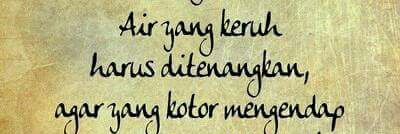 Air yang keruh
harus ditenangkan,
agar yang kotor mengendap